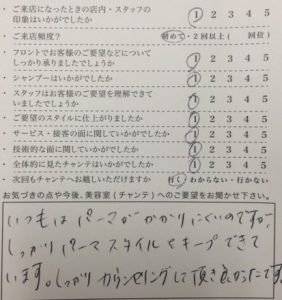 ・ご来店になったときの店内・スタッフの
印象はいかがでしたか 1 2 3 4 5
・ご来店頻度？ 初めて・2回以上( 回位)
・フロントでお客様のご要望などについて
しっかり承りましたでしょうか 1 2 3 4 5
・シャンプーはいかがでしたか 1 2 3 4 5
・スタッフはお客様のご要望を理解できて
いましたでしょうか 1 2 3 4 5
・ご要望のスタイルに仕上がりましたか 1 2 3 4 5
・サービス・接客の面に関していかがでしたか 1 2 3 4 5
・技術的な面に関していかがでしたか 1 2 3 4 5
・全体的に見たチャンテはいかがでしたか 1 2 3 4 5
・次回もチャンテへお越しいただけますか 行く・わからない・行かない
お気づきの点や今後、美容室(チャンテ)へのご要望をお聞かせ下さい。
いつもはパーマがかかりにくいのですが、
しっかりパーマスタイルをキープできて
います。しっかりカウンセリングして頂き良かったです。